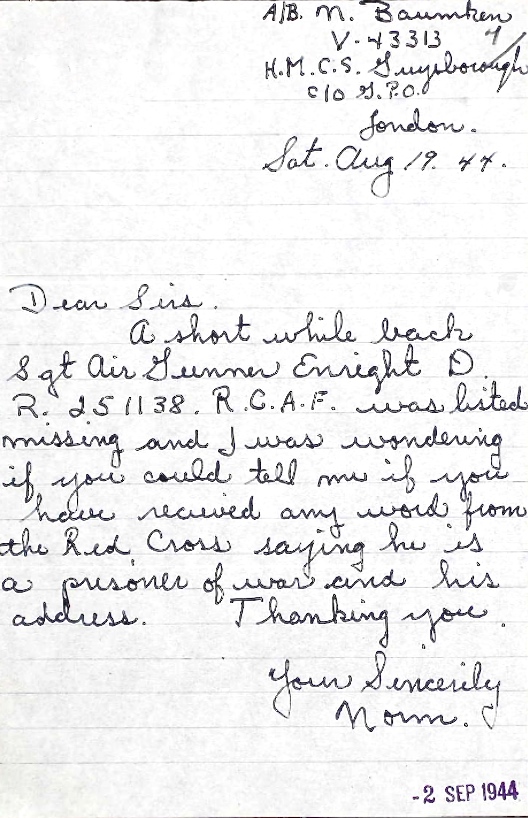 A/B. N. Baumken
V-43313
H.M.C.S. Guysborough
c/o G.P.O.
London.
Sat. Aug 19. 44.
Dear Sirs.
A short while back
Sgt Air Gunner Enright D.
R. 251138. R.C.A.F. was listed
missing and I was wondering
if you could tell me if you
have recieved any word from
the Red Cross saying he is
a prisoner of war and his
address. Thanking you.
Your Sincerily
Norm.
-2 SEP 1944